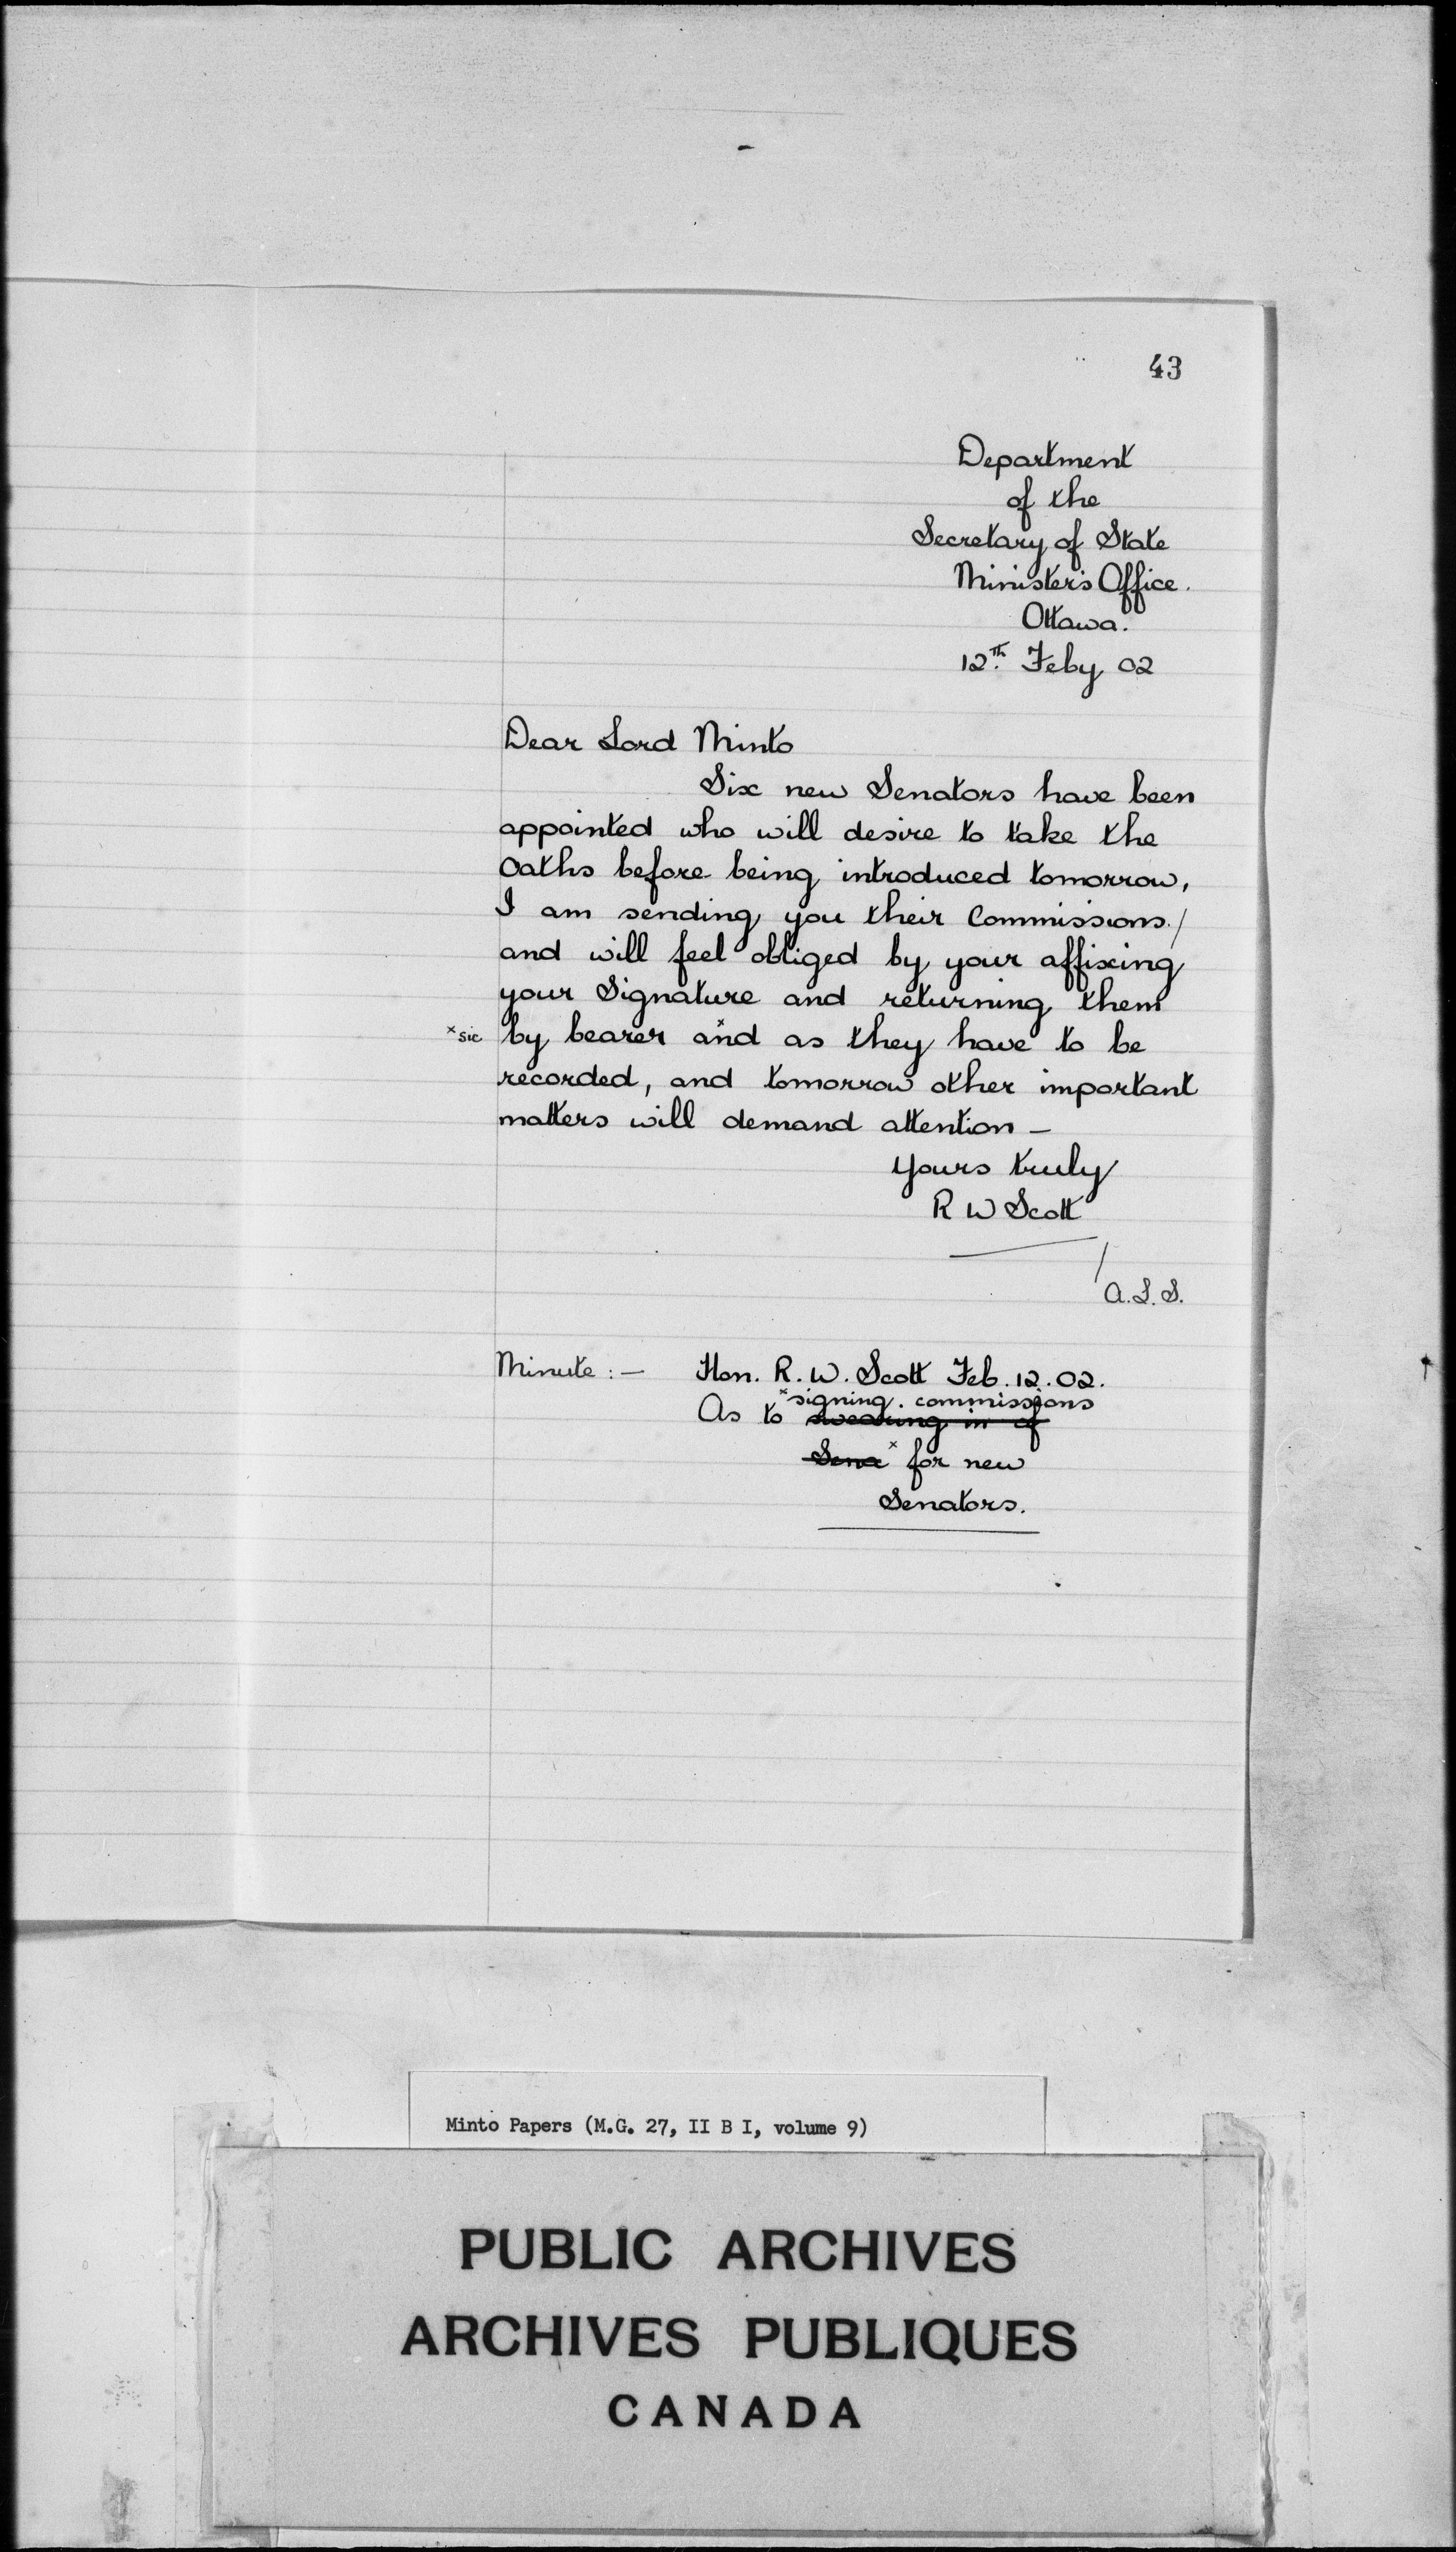 43
Department
of the
Secretary of State
Minister's Office.
Ottawa.
12th. Feby 02
Dear Lord Minto
Six new Senators have been
appointed who will desire to take the
Oaths before being introduced tomorrow,
I am sending you their Commissions./
and will feel obliged by your affixing
your Signature and returning them
x sic by bearer and x as they have to be
recorded, and tomorrow other important
matters will demand attention —
Yours truly
R W Scott
A.L.S.
Minute :— Hon. R. W. Scott Feb. 12. 02.
x signing. commissions
As to swearing in of
Sena x for new
Senators.
Minto Papers (M.G. 27, II B I, volume 9)
PUBLIC ARCHIVES
ARCHIVES PUBLIQUES
CANADA